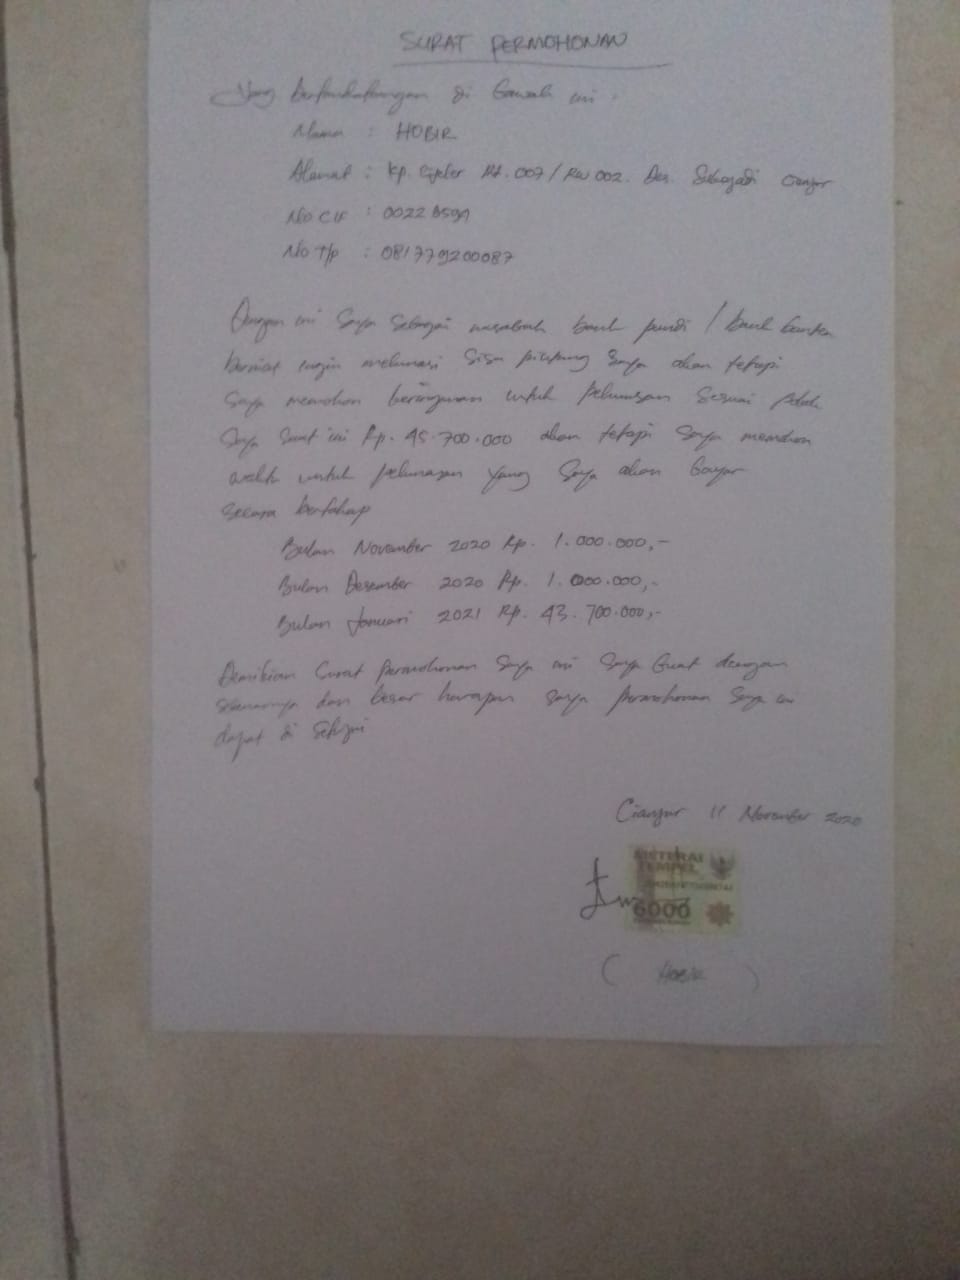 SURAT PERMOHONAN
Yang bertandatangan di bawah ini .
Nama : HOBIR
Alamat : Kp. Rt. 007 / RW 002. Des. Cianjur
No CIF : 0022
No Tlp : 081779200087
Dengan ini saya sebagai nasabah bank pundi / bank banten
berniat ingin melunasi sisa piutang saya akan tetapi
saya memohon keringanan untuk pelunasan sesuai pokok
saya saat ini Rp. 45.700.000 akan tetapi saya memohon
waktu untuk pelunasan yang saya akan bayar
secara bertahap
Bulan November 2020 Rp. 1.000.000,-
Bulan Desember 2020 Rp. 1.000.000,-
Bulan Januari 2021 Rp. 43.700.000,-
Demikian surat permohonan saya ini saya buat dengan
sebenarnya dan besar harapan saya permohonan saya ini
dapat di
Cianjur 11 November 2020
METERAI
TEMPEL
6000
( HOBIR )